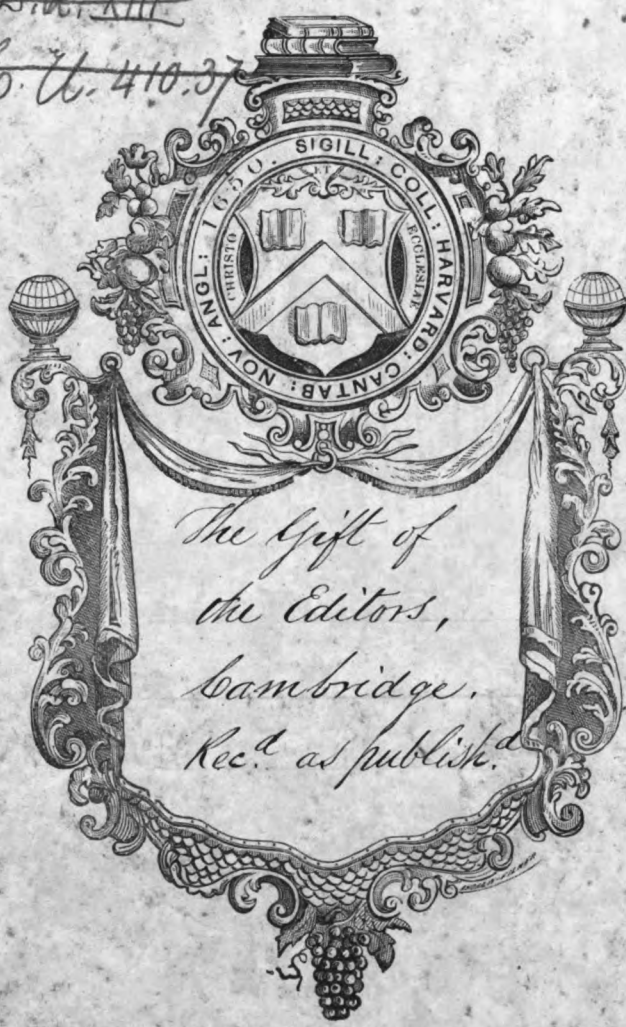 XIII
U. 410.37
SIGILL: COLL: HARVARD: CANTAB: NOV: ANGL: 1650.
ET
CHRISTO
ECCLESIAE
The Gift of
the Editors,
Cambridge.
Rec.d as publish.d